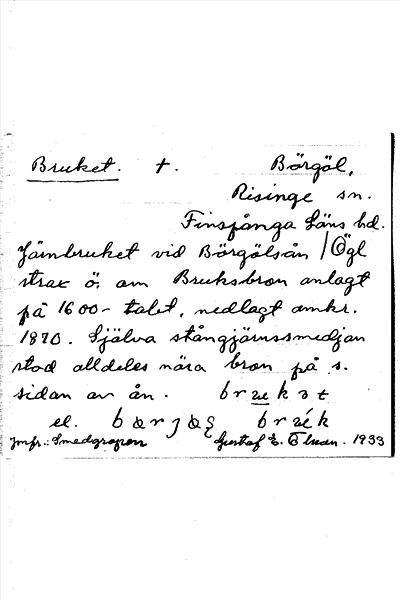 Bruket. †. Börgöl,
Risinge sn.
Finspånga läns hd.
Järnbruket vid Börgölsån /Ögl
strax ö. om Bruksbron anlagt
på 1600-talet, nedlagt omkr.
1870. Själva stångjärnssmedjan
stod alldeles nära bron på s.
sidan av ån.
el.
Jmfr.: Smedgropen Gustaf E. 1933